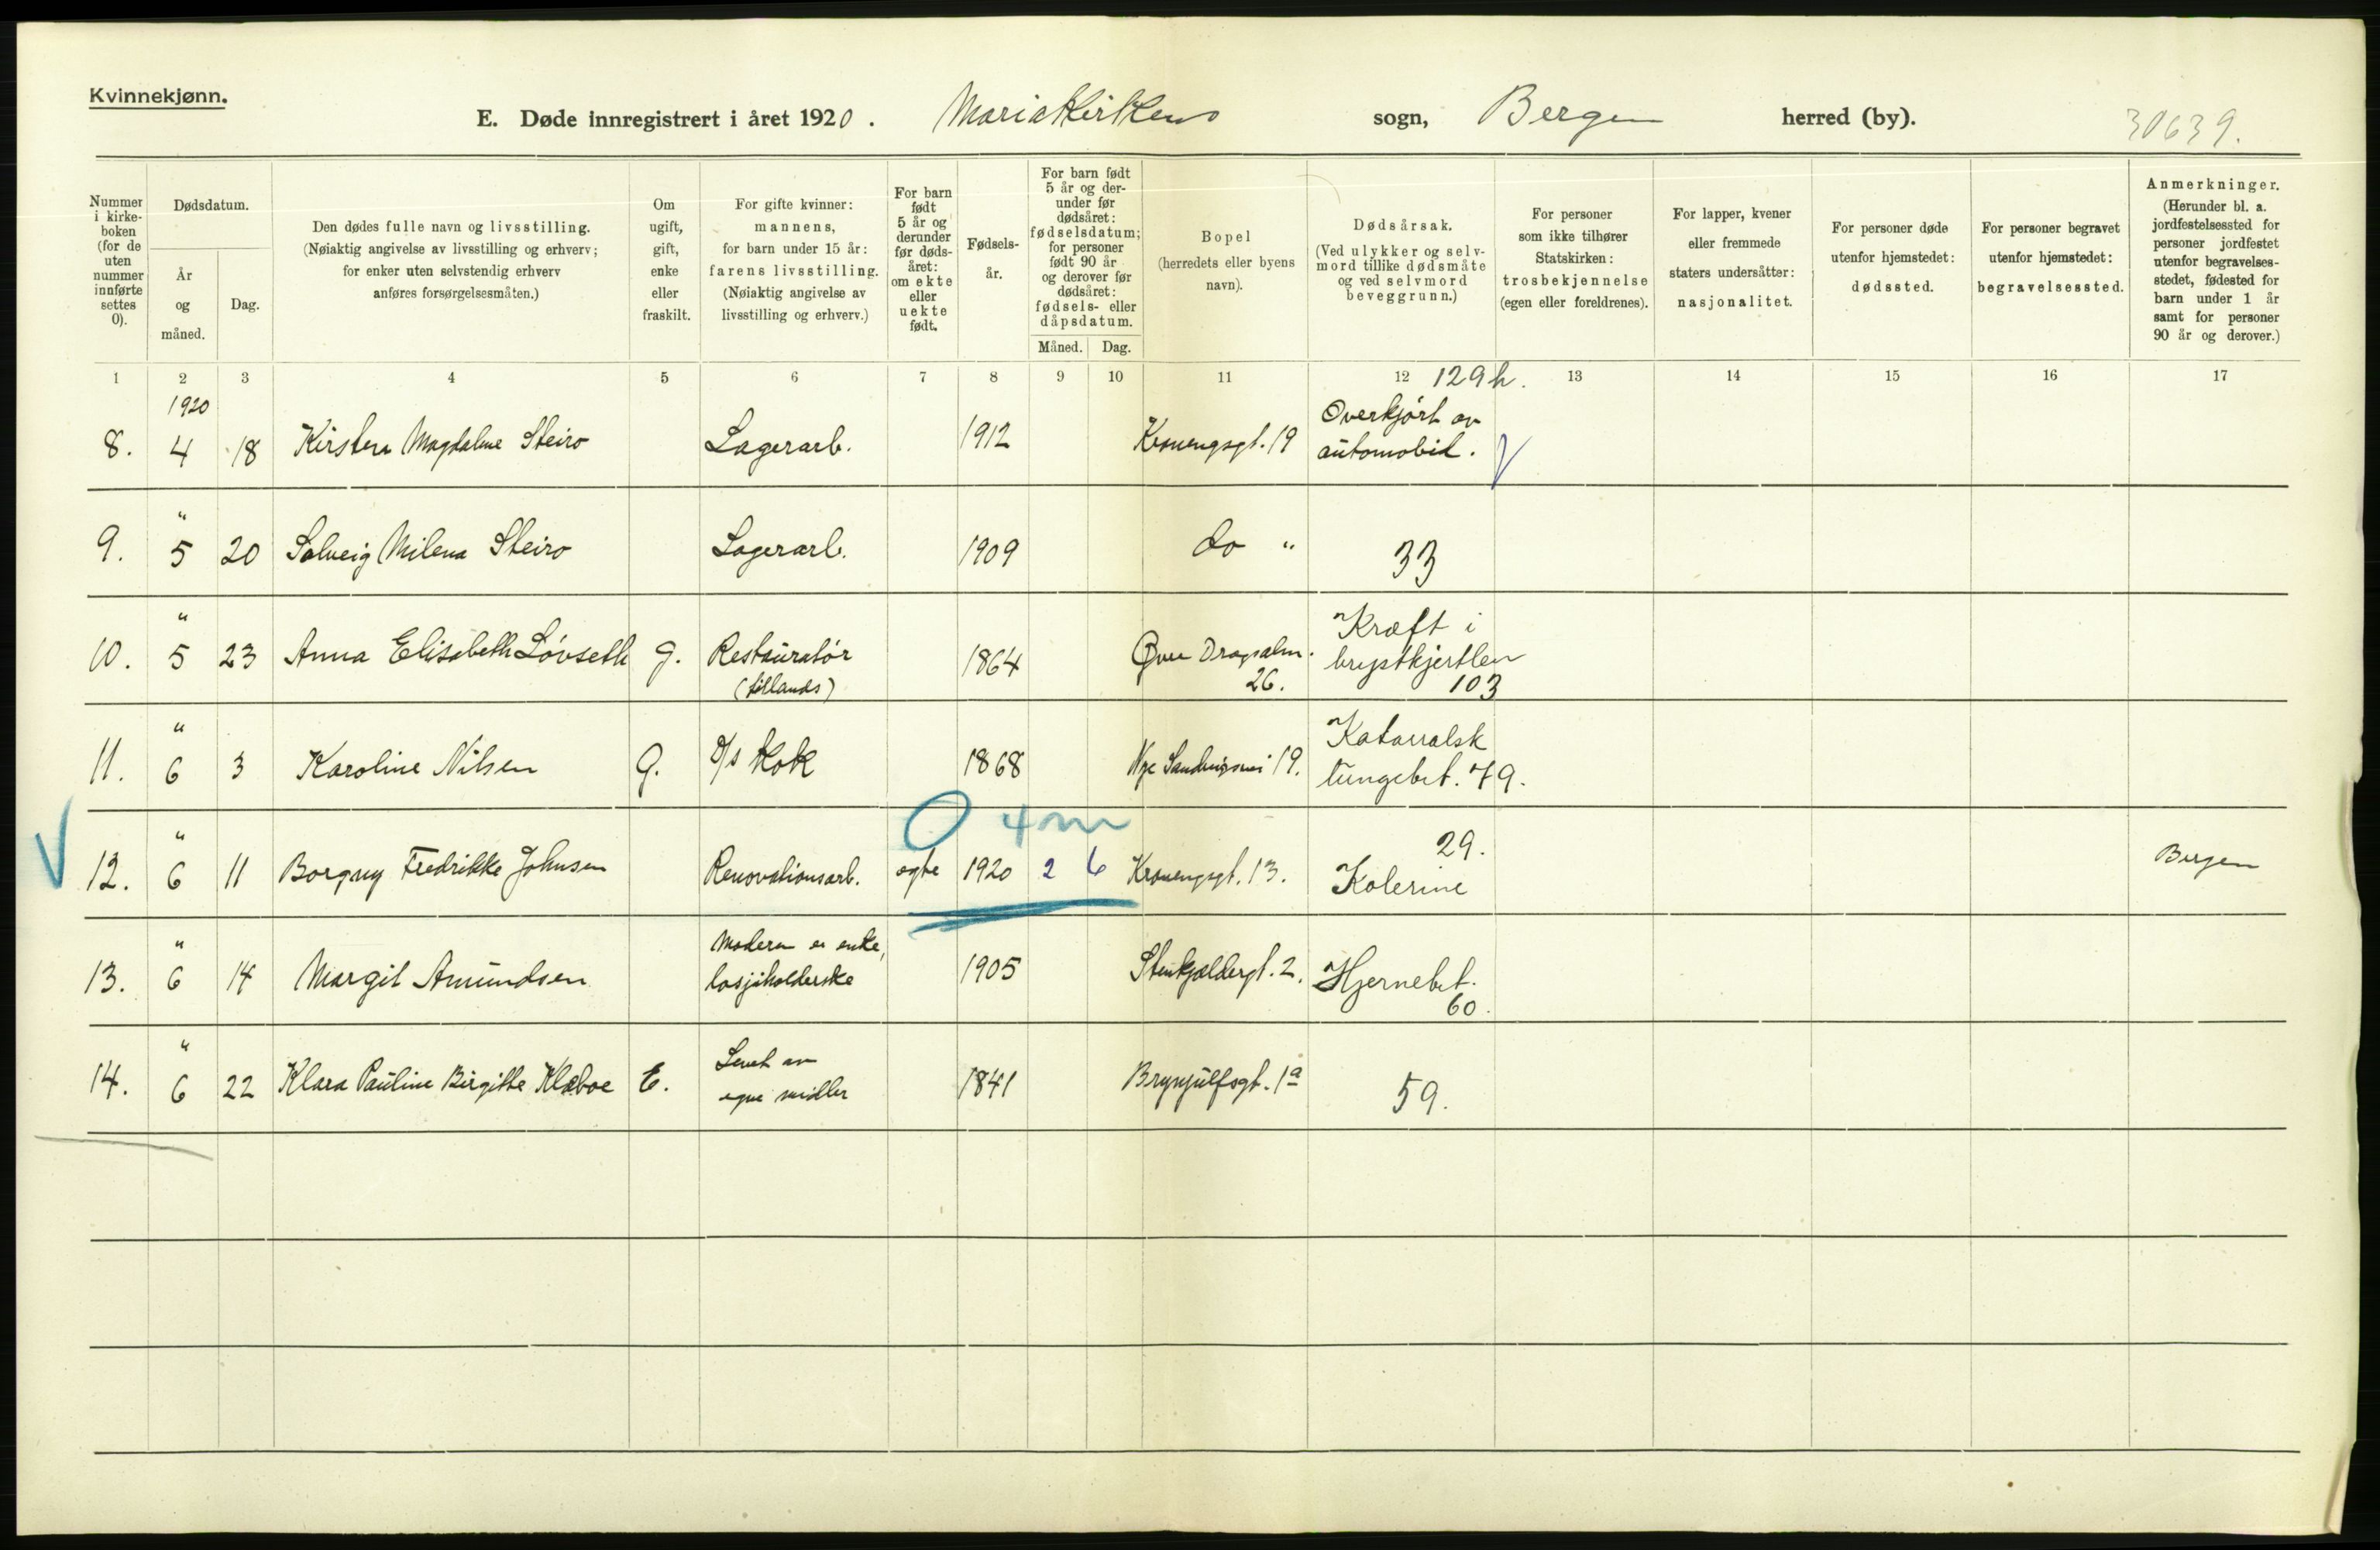 Kvinnekjønn.
E. Døde innregistrert i året 1920. Mariakirkens sogn, Bergen herred (by). 30639.
Nummer i kirkeboken (for de uten nummer innførte settes 0).
Dødsdatum.
År og måned.
Dag.
Den dødes fulle navn og livsstilling.
(Nøiaktig angivelse av livsstilling og erhverv;
for enker uten selvstendig erhverv
anføres forsørgelsesmåten.)
Om ugift, gift, enke eller fraskilt.
For gifte kvinner:
mannens,
for barn under 15 år:
farens livsstilling.
(Nøiaktig angivelse av
livsstilling og erhverv.)
For barn født 5 år og derunder før dødsåret: om ekte eller uekte født.
Fødselsår.
For barn født 5 år og derunder før dødsåret: fødselsdatum; for personer født 90 år og derover før dødsåret: fødsels- eller dåpsdatum.
Måned. Dag.
Bopel
(herredets eller byens
navn).
Dødsårsak.
(Ved ulykker og selvmord tillike dødsmåte og ved selvmord beveggrunn.)
For personer
som ikke tilhører
Statskirken:
trosbekjennelse
(egen eller foreldrenes).
For lapper, kvener
eller fremmede
staters undersåtter:
nasjonalitet.
For personer døde
utenfor hjemstedet:
dødssted.
For personer begravet
utenfor hjemstedet:
begravelsessted.
Anmerkninger.
(Herunder bl. a.
jordfestelsessted for
personer jordfestet
utenfor begravelsesstedet, fødested for
barn under 1 år
samt for personer
90 år og derover.)
1 2 3 4 5 6 7 8 9 10 11 12 129h. 13 14 15 16 17
1920
8. 4 18 Kirsten Magdalene Steiro Lagerarb. 1912 Kronengsgt. 19 Overkjørt av
automobil.
"
9. 5 20 Solveig Milena Steiro Lagerarb. 1909 do " 33
"
10. 5 23 Anna Elisabeth Løvseth g. Restauratør 1864 Øvre Dragsalm. Kræft i
brystkjertlen
(tillands) 26. 103
"
11. 6 3 Karoline Nilsen G. d/s kok 1868 Nye Sandviksvei 19. Katarralsk
lungebet. 79.
O 4m
"
12. 6 11 Borgny Fredrikke Johnsen Renovationsarb. egte 1920 2 6 Kronengsgt. 13. 29.
Kolerine Bergen
"
13. 6 14 Margit Amundsen Moderen er enke,
losjiholderske 1905 Stenkjeldergt. 2. Hjernebet.
60.
"
14. 6 22 Klara Pauline Birgitte Klæboe E. Levet av
egne midler 1841 Brynjulfsgt. 1a 59.